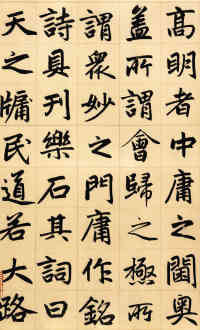 高明者中庸之閫奧
蓋所謂會歸之極所
謂衆妙之門庸作銘
詩具刊樂石其詞曰
天之牖民道若大路